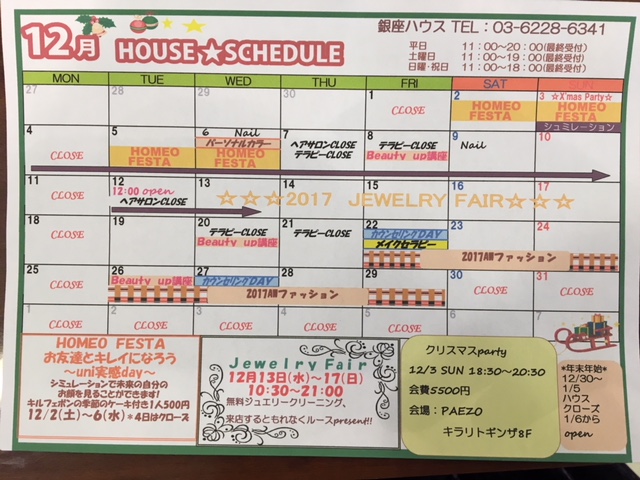 12月 HOUSE★SCHEDULE
銀座ハウス TEL:03-6228-6341
平日 11:00~20:00(最終受付)
土曜日 11:00~19:00(最終受付)
日曜・祝日 11:00~18:00(最終受付)
MON TUE WED THU FRI SAT SUN
27 28 29 30 1 2 3 ☆X'mas Party☆
CLOSE HOMEO FESTA HOMEO FESTA
シュミレーション
4 5 6 Nail 7 ヘアサロンCLOSE 8 テラピーCLOSE 9 Nail 10
CLOSE HOMEO FESTA パーソナルカラー HOMEO FESTA テラピーCLOSE Beauty up講座
11 12 13 14 15 16 17
CLOSE 12:00 open ☆☆☆2017 JEWELRY FAIR☆☆☆
ヘアサロンCLOSE
18 19 20 21 22 23 24
CLOSE テラピーCLOSE テラピーCLOSE カウンセリングDAY
Beauty up講座 メイクセラピー
2017AWファッション
25 26 27 28 29 30 31
CLOSE Beauty up講座 カウンセリングDAY CLOSE CLOSE
2017AWファッション
1 2 3 4 5 6 7
CLOSE CLOSE CLOSE CLOSE CLOSE
HOMEO FESTA
お友達とキレイになろう
~uni実感day~
シミュレーションで未来の自分の
お顔を見ることができます!
キルフェボンの季節のケーキ付き1人500円
12/2(土)~6(水)*4日はクローズ
Jewelry Fair
12月13日(水)~17(日)
10:30~21:00
無料ジュエリークリーニング、
来店するともれなくルースpresent!!
クリスマスparty
12/3 SUN 18:30~20:30
会費5500円
会場:PAEZO
キラリトギンザ8F
*年末年始*
12/30~
1/5
ハウス
クローズ
1/6から
open